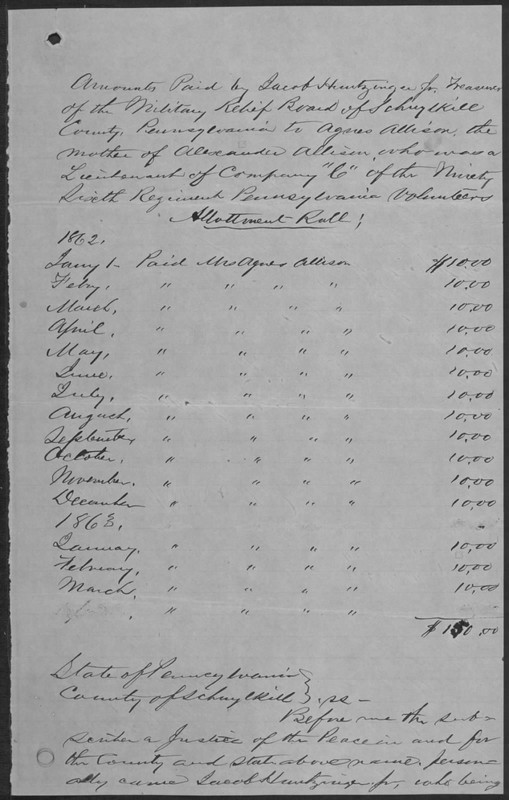 Amounts Paid by Jacob Huntzinger Jr. Treasurer
of the Military Relief Board of Schuylkill
County, Pennsylvania to Agnes Allison, the
mother of Alexander Allison, who was a
Lieutenant of Company "C" of the Ninety
Sixth Regiment Pennsylvania Volunteers
Allottment Roll;
1862.
Jany 1- Paid Mrs Agnes Allison $10.00
Feby. " " " " 10.00
March, " " " " 10.00
April, " " " " 10.00
May, " " " " 10.00
June. " " " " 10.00
July, " " " " 10.00
August, " " " " 10.00
September " " " " 10.00
October, " " " " 10.00
November. " " " " 10.00
December " " " " 10.00
1863.
January, " " " " 10.00
February, " " " " 10.00
March, " " " " 10.00
. " " " "
$150.00
State of Pennsylvania
County of Schuylkill } ss-
Before me the sub=
scriber a Justice of the Peace in and for
the County and state above name, person-
ally came Jacob Huntzinger Jr, who being